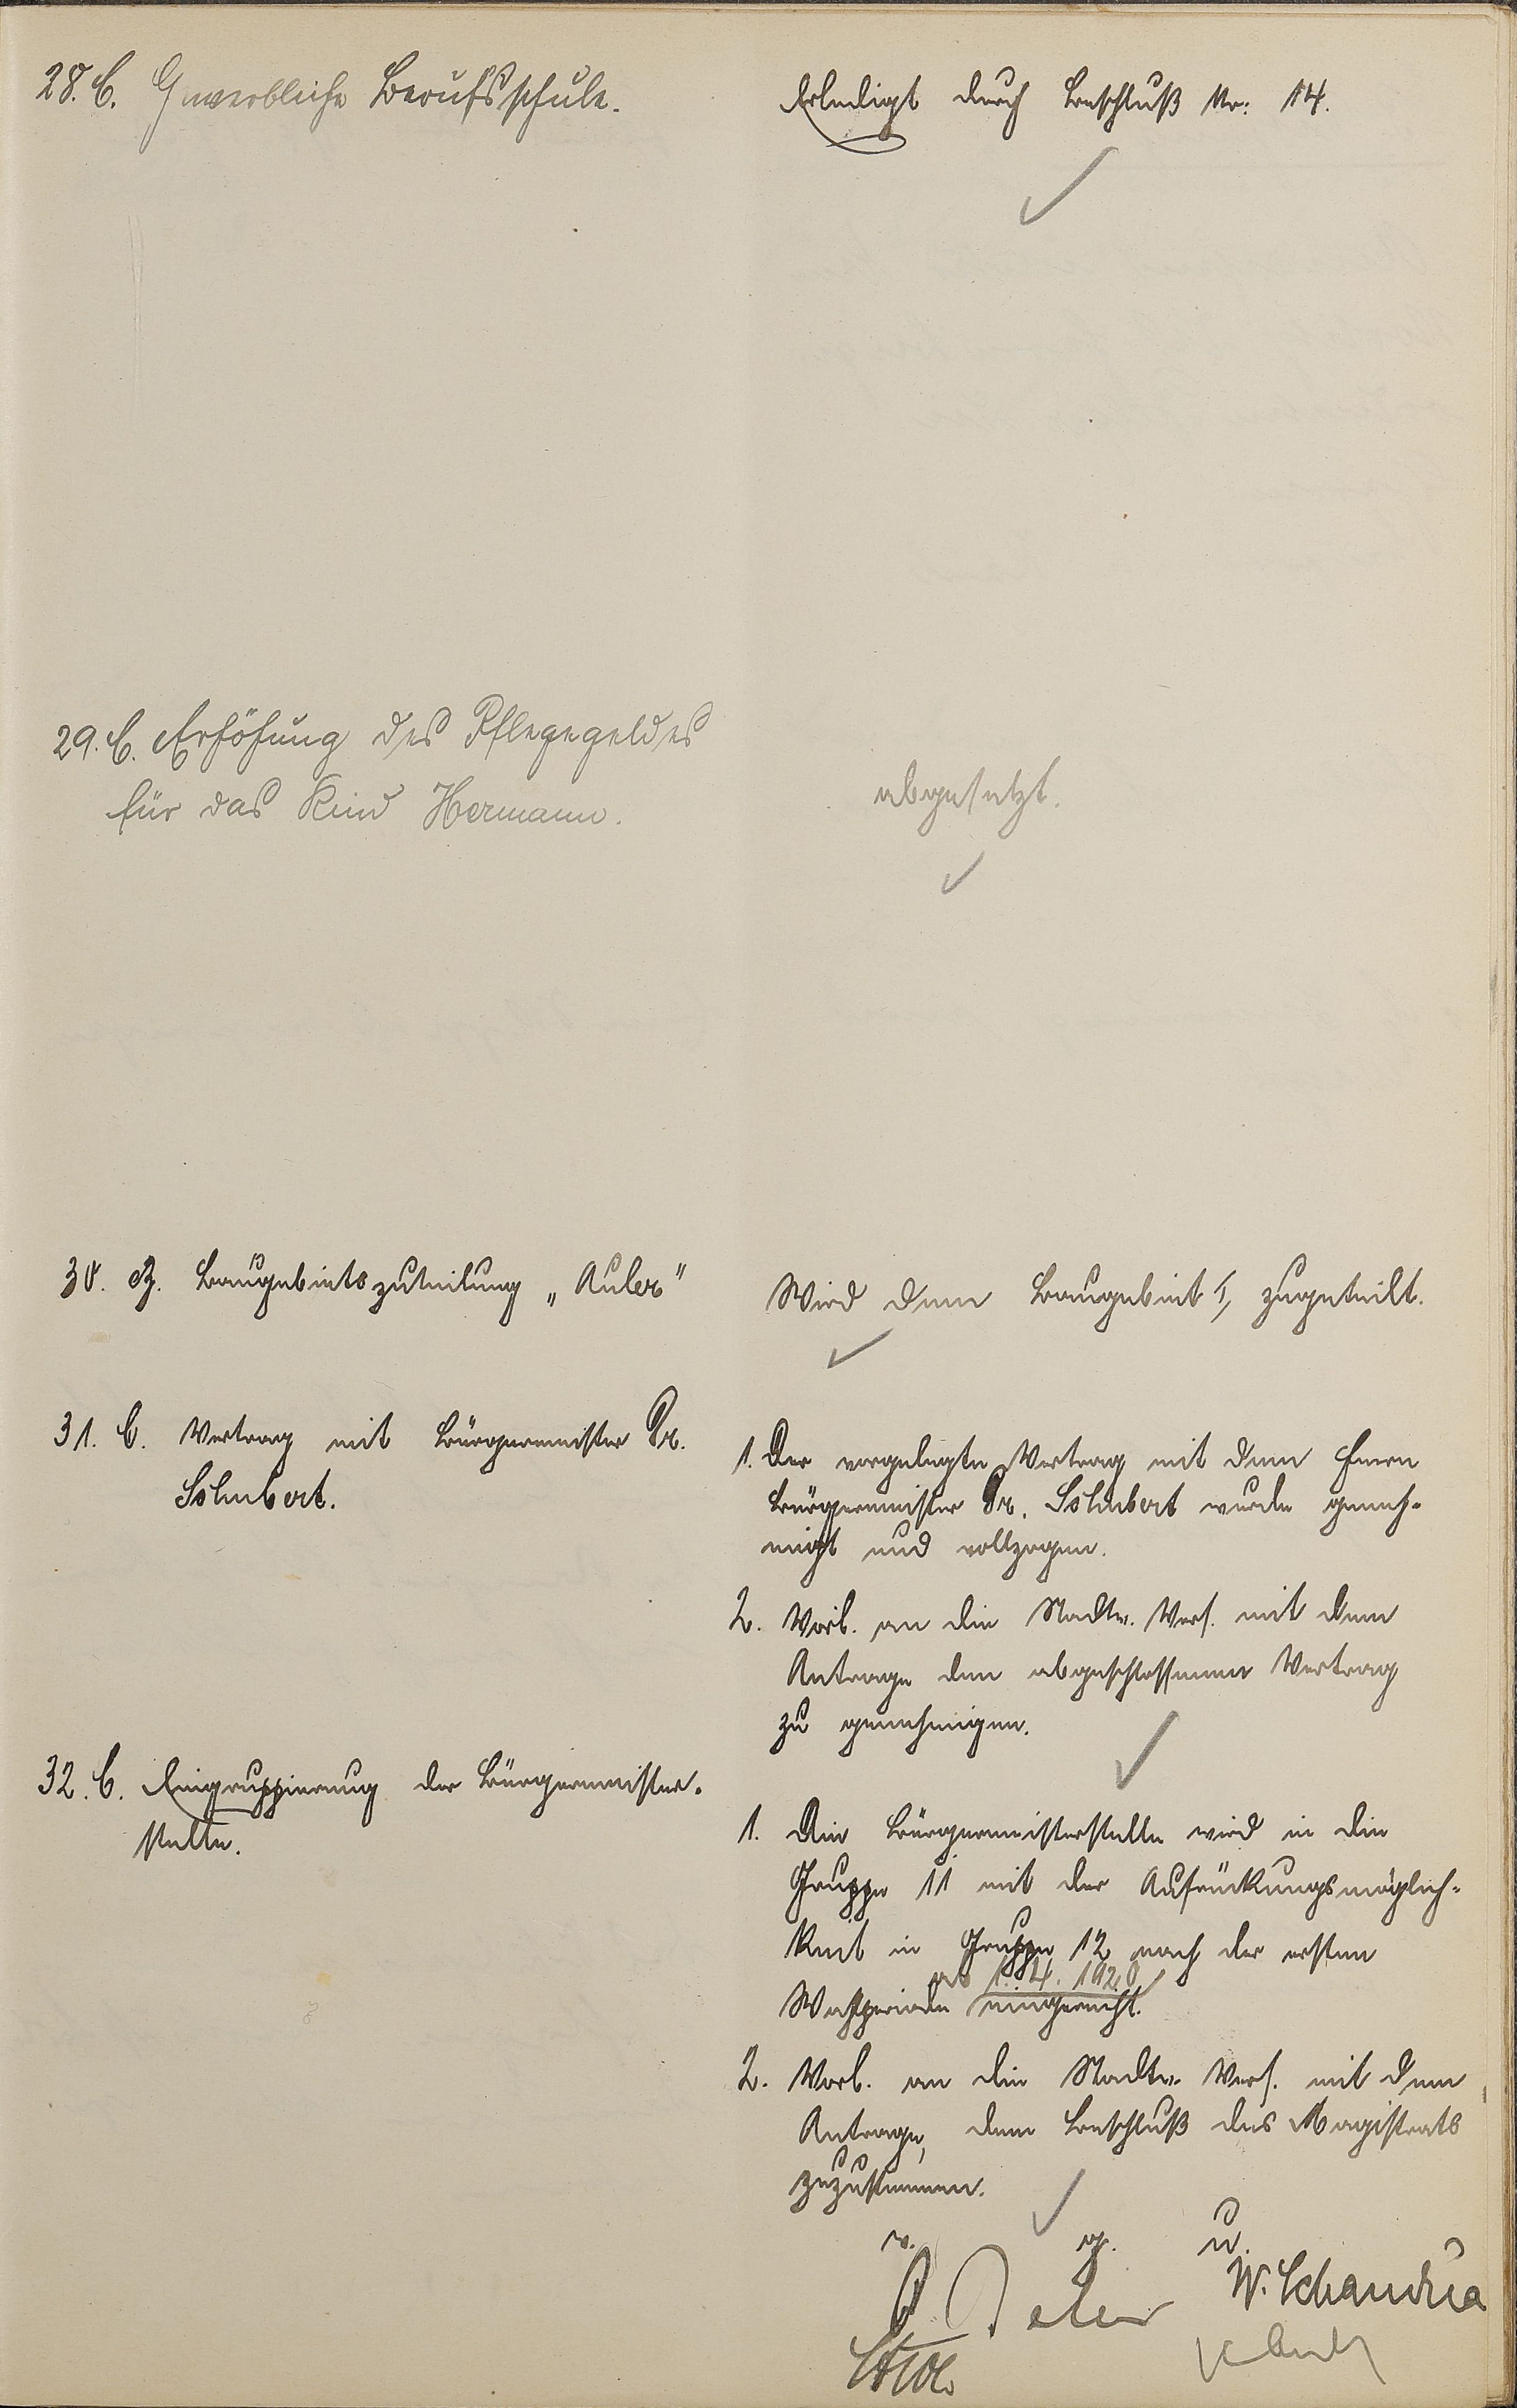 28. C. Gewerbliche Berufsschule.
Erledigt durch Beschluß Nr: 14.
29. C. Erhöhung des Pflegegeldes
für das Kind Hermann.
abgesetzt.
30. B. Baugebietszuteilung „Auler"
Wird dem Baugebiet I, zugeteilt.
31. C. Vertrag mit Bürgermeister Dr.
Schubert.
1. Der vorgelegte Vertrag mit dem Herrn
Bürgermeister Dr. Schubert wurde geneh-
migt und vollzogen.
2. Vorl. an die Stadtv. Vers. mit dem
Antrage den abgeschlossenen Vertrag
zu genehmigen.
32. C. Eingruppierung der Bürgermeister-
stelle.
1. Die Bürgermeisterstelle wird in die
Gruppe 11 mit der Aufrückungsmöglich-
keit in Gruppe 12 nach der ersten
ab 1. 4. 1920
Wahlperiode eingereiht.
2. Vorl. an die Stadtv. Vers. mit dem
Antrage, dem Beschluß des Magistrats
zuzustimmen.
v. g. u.
W. Schandua